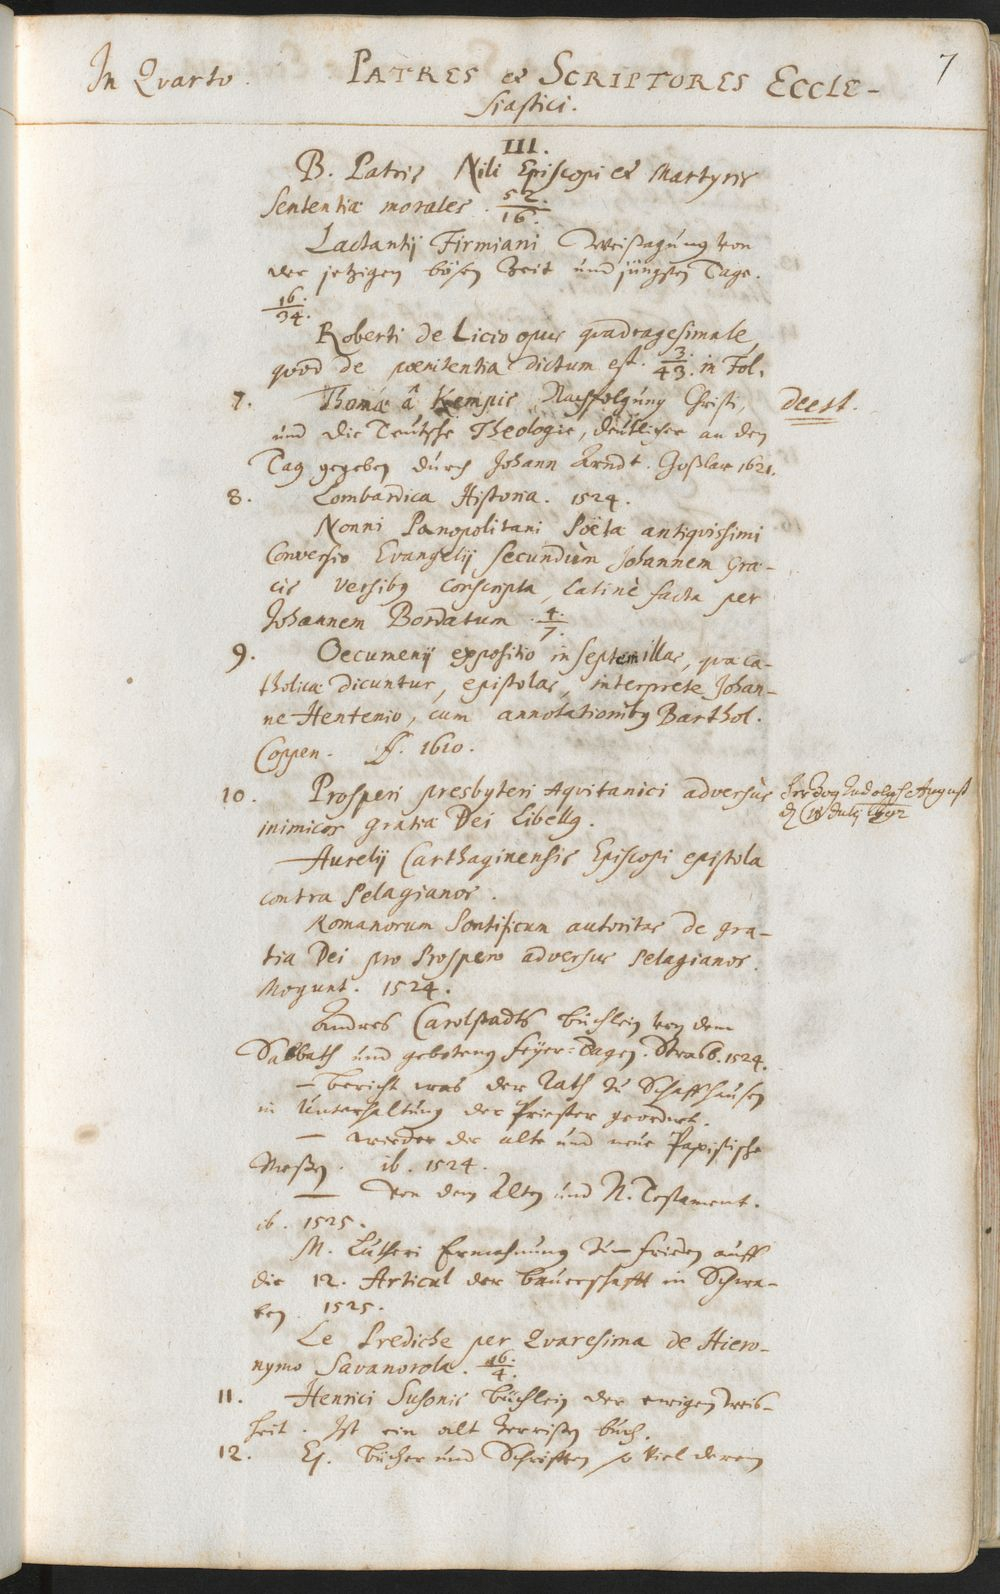 7
In Qvarto. PATRES et SCRIPTORES ECCLE-
siastici.
III.
B. Patris Nili Episcopi et Martyris
Sententiæ morales. 52./16.
Lactantij Firmiani Weissagung von
der jetzigen bösen Zeit und jüngsten Tage.
16./34.
Roberti de Licio opus qvadragesimale,
qvod de pœnitentia dictum est. 3./43. in Fol.
7. Thomæ â Kempis Nachfolgung Christi, deest.
und die Teutsche Theologie, deütlicher an den
Tag gegeben durch Johann Arndt. Goßlar 1621.
8. Lombardica Historia. 1524.
Nonni Panopolitani Poëtæ antiqvissimi
Conversio Evangelij secundùm Johannem Græ-
cis versibq conscripta, Latinè facta per
Johannem Bordatum. 4./7.
9. Oecumenij expositio in septem illas, qvæ ca-
tholicæ dicuntur, epistolas, interprete Johan-
ne Hentenio, cum annotationibq Barthol.
Coppen. ff. 1610.
10. Prosperi presbyteri Aqvitanici adversus Herzog Rudolph August
inimicos gratiæ Dei Libellq. Julij
Aurelij Carthaginensis Episcopi epistola
contra Pelagianos.
Romanorum Pontificum autoritas de gra-
tia Dei pro Prospero adversus Pelagianos.
Mogunt. 1524.
Andres Carolstadts büchlein von dem
Sabbath und gebotenen feÿer-Tagen. Strasb. 1524.
— bericht was der Rath zu Schaffhausen
in Unterhaltung der Priester geordnet.
— wieder die alte und neue Papistische
Meßen. ib. 1524.
— Von dem Alten und N. Testament.
ib. 1525.
M. Lutheri Ermahnung zum frieden auff
die 12. Articul der baurschafft in Schwa-
ben. 1525.
Le Prediche per Qvaresima de Hiero-
nymo Savanorola. 16./4.
11. Henrici Susonis büchlein der ewigen weis-
heit. Ist ein alt zerrißen buch.
12. Ej. bücher und Schrifften so viel deren